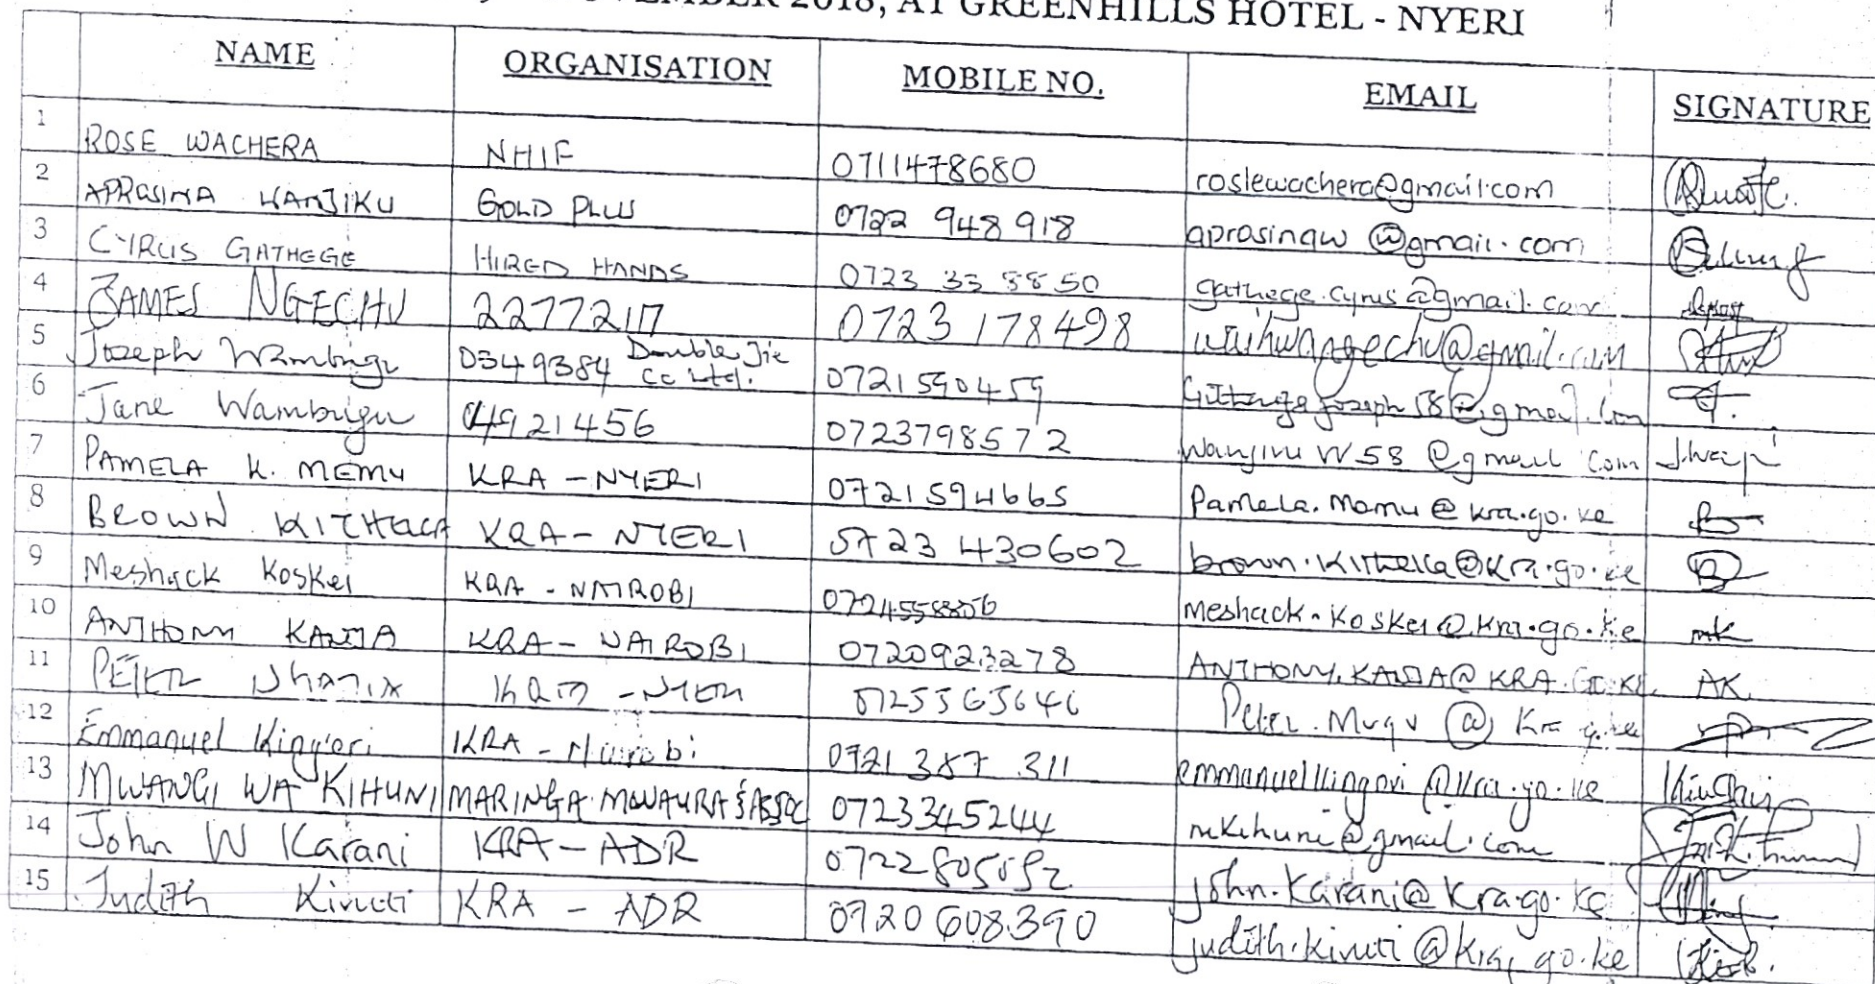 NOVEMBER 2018, AT GREENHILLS HOTEL - NYERI
NAME ORGANISATION MOBILE NO. EMAIL SIGNATURE
1 ROSE WACHERA NHIF 0711478680 roslewachera@gmail.com
2 APRASINA WANJIKU GOLD PLUS 0722 948 918 aprasinaw @gmail.com
3 CYRUS GATHEGE HIRED HANDS 0723 33 88 50 gathege.cyrus@gmail.com
4 JAMES NGECHU 2277217 0723 178498
5 Joseph Wambugu 0349384 Double Jie CC Ltd. 0721590459
6 Jane Wambugu 4921456 0723798572 WanjiruW58@gmail.com
7 PAMELA K. MEMU KRA - NYERI 0721594665 Pamela.momu@kra.go.ke
8 BROWN KITHEKA KRA - NYERI 0723 430602 brown.kitheka@kra.go.ke
9 Meshack Koskei KRA - NAIROBI meshack.koskei@kra.go.ke
10 ANTHONY KAUTA KRA - NAIROBI 0720923278 AK
11 PETER KRA - NYERI Peter.Mugu @ Kra.go.ke
12 Emmanuel King'ori KRA - Nairobi 0721 387 311 emmanuel.kingori@kra.go.ke
13 MWANGI WA KIHUNI MARINGA MWAURA & ASSOC 0723345244 mkihuni@gmail.com
14 John W Karani KRA - ADR 0722805052 john.karani@kra.go.ke
15 Judith Kivuti KRA - ADR 0720 608390 judith.kivuti@kra.go.ke